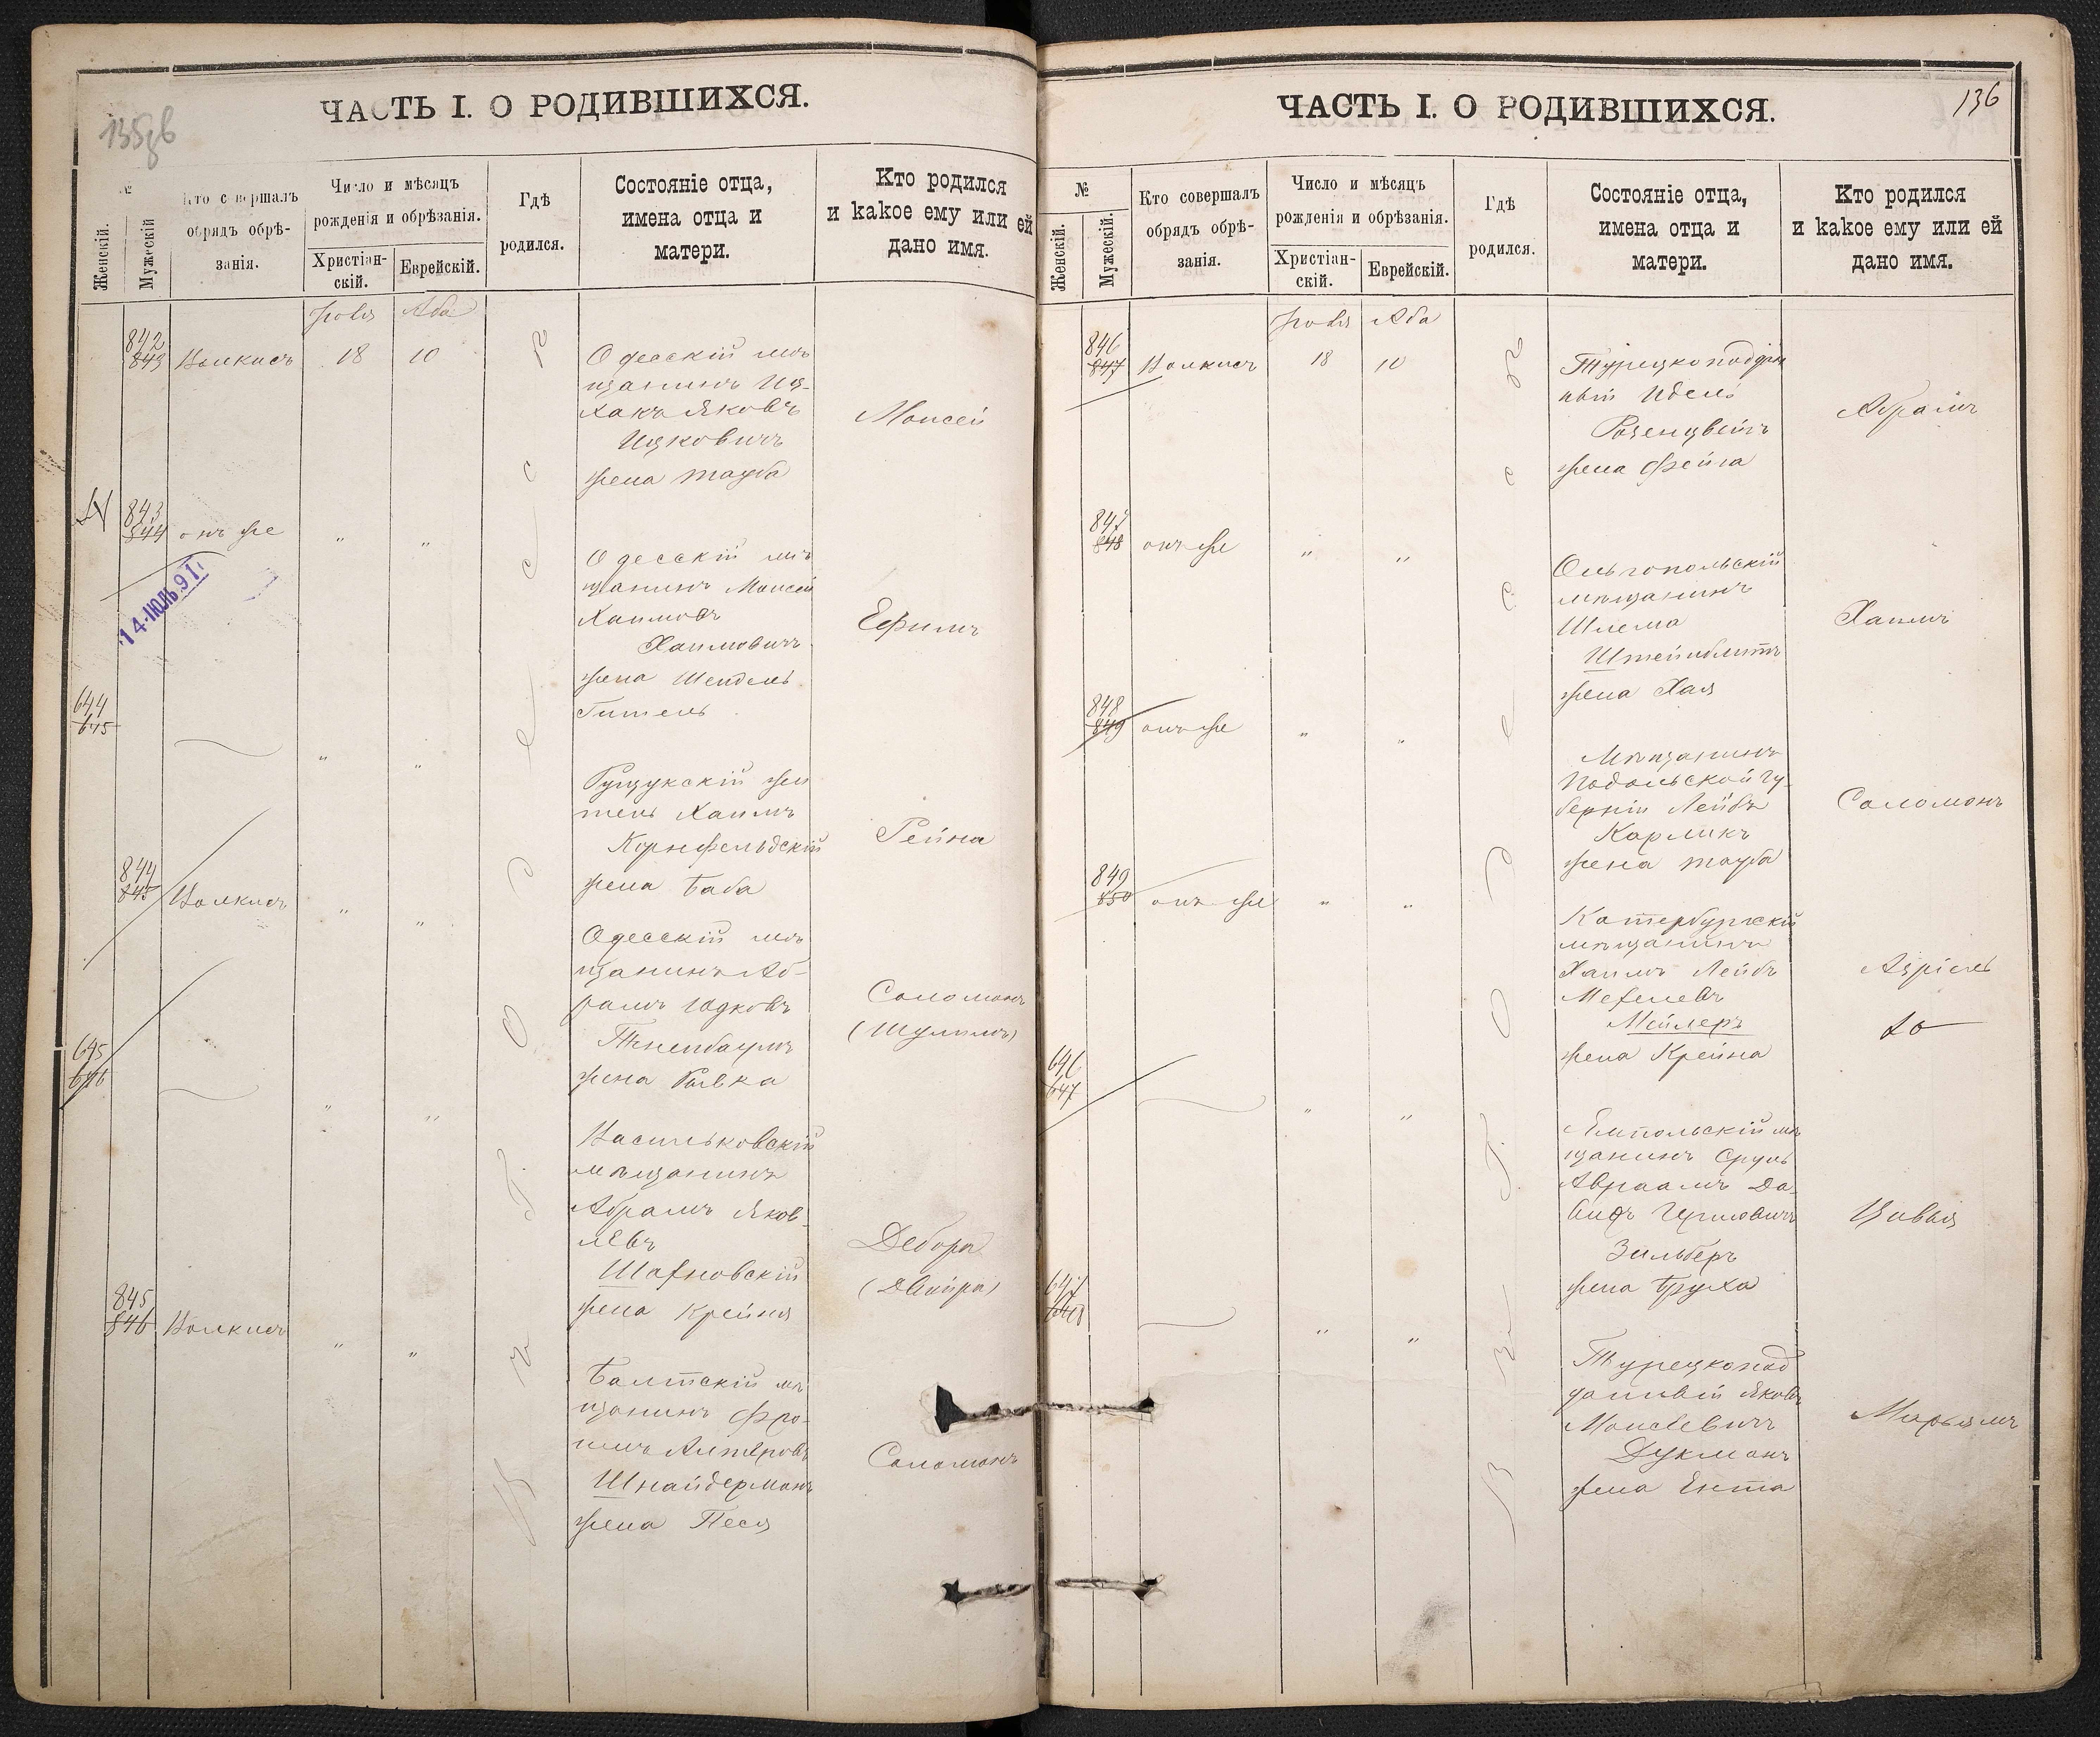 ЧАСТЬ I. О РОДИВШИХСЯ.
№
Женскій.
Мужескій
Кто совершалъ обрядъ обрѣ-
занія.
Число и мѣсяцъ
рожденія и обрѣзанія.
Христіан-
скій.
Еврейскій.
Гдѣ
родился.
Состояніе отца,
имена отца и
матери.
Кто родился
и какое ему или ей
дано имя.
Іюля Аба
842
843
18 10
Одесскій мѣ
щанинъ Иц-
хакъ Яковъ
Ицковичъ
жена Тауба
Моисей
843
844
онъ же " "
14·ІЮЛЬ 91
Одесскій мѣ
щанинъ Моисей
Хаимовъ
Хаимовичъ
жена Шендель
Гитель
Ефимъ
644
645
" "
Рущукскій жи
тель Хаимъ
Корнфельдскій
жена Баба
Рейна
844
845
" "
Одесскій мѣ
щанинъ Аб-
рамъ Юдковъ
жена Ривка
Соломонъ
(Шулимъ)
645
646
" "
Васильковскій
мѣщанинъ
Абрамъ Яков-
левъ
Шахновскій
жена Крейня
Дебора
(Двойра)
845
846
" "
Балтскій мѣ
щанинъ Фро-
имъ Алтеровъ
Шнайдерманъ
жена Песя
Соломонъ
ЧАСТЬ I. О РОДИВШИХСЯ.
136
№
Женскій.
Мужескій.
Кто совершалъ
обрядъ обрѣ-
занія.
Число и мѣсяцъ
рожденія и обрѣзанія.
Христіан-
скій.
Еврейскій.
Гдѣ
родился.
Состояніе отца,
имена отца и
матери.
Кто родился
и какое ему или ей
дано имя.
Іюля Аба
846
847
18 10
Турецкоподдан
ный Идель
Розенцвейгъ
жена Фейга
Абрамъ
847
848
онъ же " "
Ольгопольскій
мѣщанинъ
Шлема
жена Хая
Хаимъ
848
849
онъ же " "
Мѣщанинъ
Подольской Гу-
берніи Лейбъ
Карликъ
жена Тауба
Соломонъ
849
850
онъ же " "
Катербургскій
мѣщанинъ
Хаимъ Лейбъ
Мехелевъ
Мейлеръ
жена Крейна
Азріель
646
647
" "
Ямпольскій мѣ
щанинъ Сруль
Авраамъ Да-
видъ
Зильберъ
жена Бруха
Цивья
647
648
" "
Турецкопод
данный Яковъ
Моисеевичъ
Дукманъ
жена Ента
Марьямъ